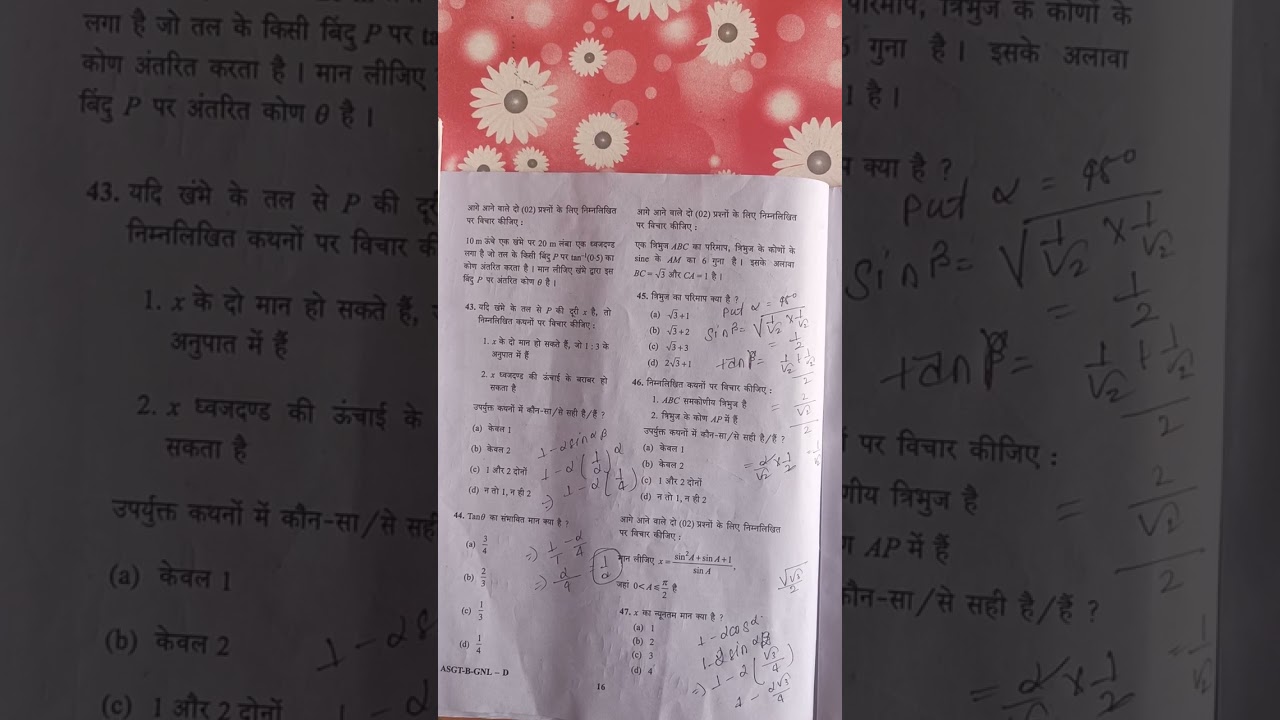 आगे आने वाले दो (02) प्रश्नों के लिए निम्नलिखित
पर विचार कीजिए :
10 m ऊंचे एक खंभे पर 20 m लंबा एक ध्वजदण्ड
लगा है जो तल के किसी बिंदु P पर tan⁻¹(0·5) का
कोण अंतरित करता है । मान लीजिए खंभे द्वारा इस
बिंदु P पर अंतरित कोण θ है ।
43. यदि खंभे के तल से P की दूरी x है, तो
निम्नलिखित कथनों पर विचार कीजिए :
1. x के दो मान हो सकते हैं, जो 1 : 3 के
अनुपात में हैं
2. x ध्वजदण्ड की ऊंचाई के बराबर हो
सकता है
उपर्युक्त कथनों में कौन-सा/से सही है/हैं ?
(a) केवल 1
(b) केवल 2
(c) 1 और 2 दोनों
(d) न तो 1, न ही 2
44. Tanθ का संभावित मान क्या है ?
(a) 3/4
(b) 2/3
(c) 1/3
(d) 1/4
ASGT-B-GNL – D
आगे आने वाले दो (02) प्रश्नों के लिए निम्नलिखित
पर विचार कीजिए :
एक त्रिभुज ABC का परिमाप, त्रिभुज के कोणों के
sine के AM का 6 गुना है । इसके अलावा
BC = √3 और CA = 1 है ।
45. त्रिभुज का परिमाप क्या है ?
(a) √3 + 1
(b) √3 + 2
(c) √3 + 3
(d) 2√3 + 1
put α = 45°
sin β = √(1/√2 × 1/√2)
= 1/2
tan β = (1/√2 + 1/√2)/2
= (2/√2)/2
46. निम्नलिखित कथनों पर विचार कीजिए :
1. ABC समकोणीय त्रिभुज है
2. त्रिभुज के कोण AP में हैं
उपर्युक्त कथनों में कौन-सा/से सही है/हैं ?
(a) केवल 1
(b) केवल 2
(c) 1 और 2 दोनों
(d) न तो 1, न ही 2
= 2/√2 × 1/2 = 1/√2
आगे आने वाले दो (02) प्रश्नों के लिए निम्नलिखित
पर विचार कीजिए :
मान लीजिए x = (sin²A + sin A + 1)/sin A,
जहां 0 < A ≤ π/2 है
47. x का न्यूनतम मान क्या है ?
(a) 1
(b) 2
(c) 3
(d) 4
16